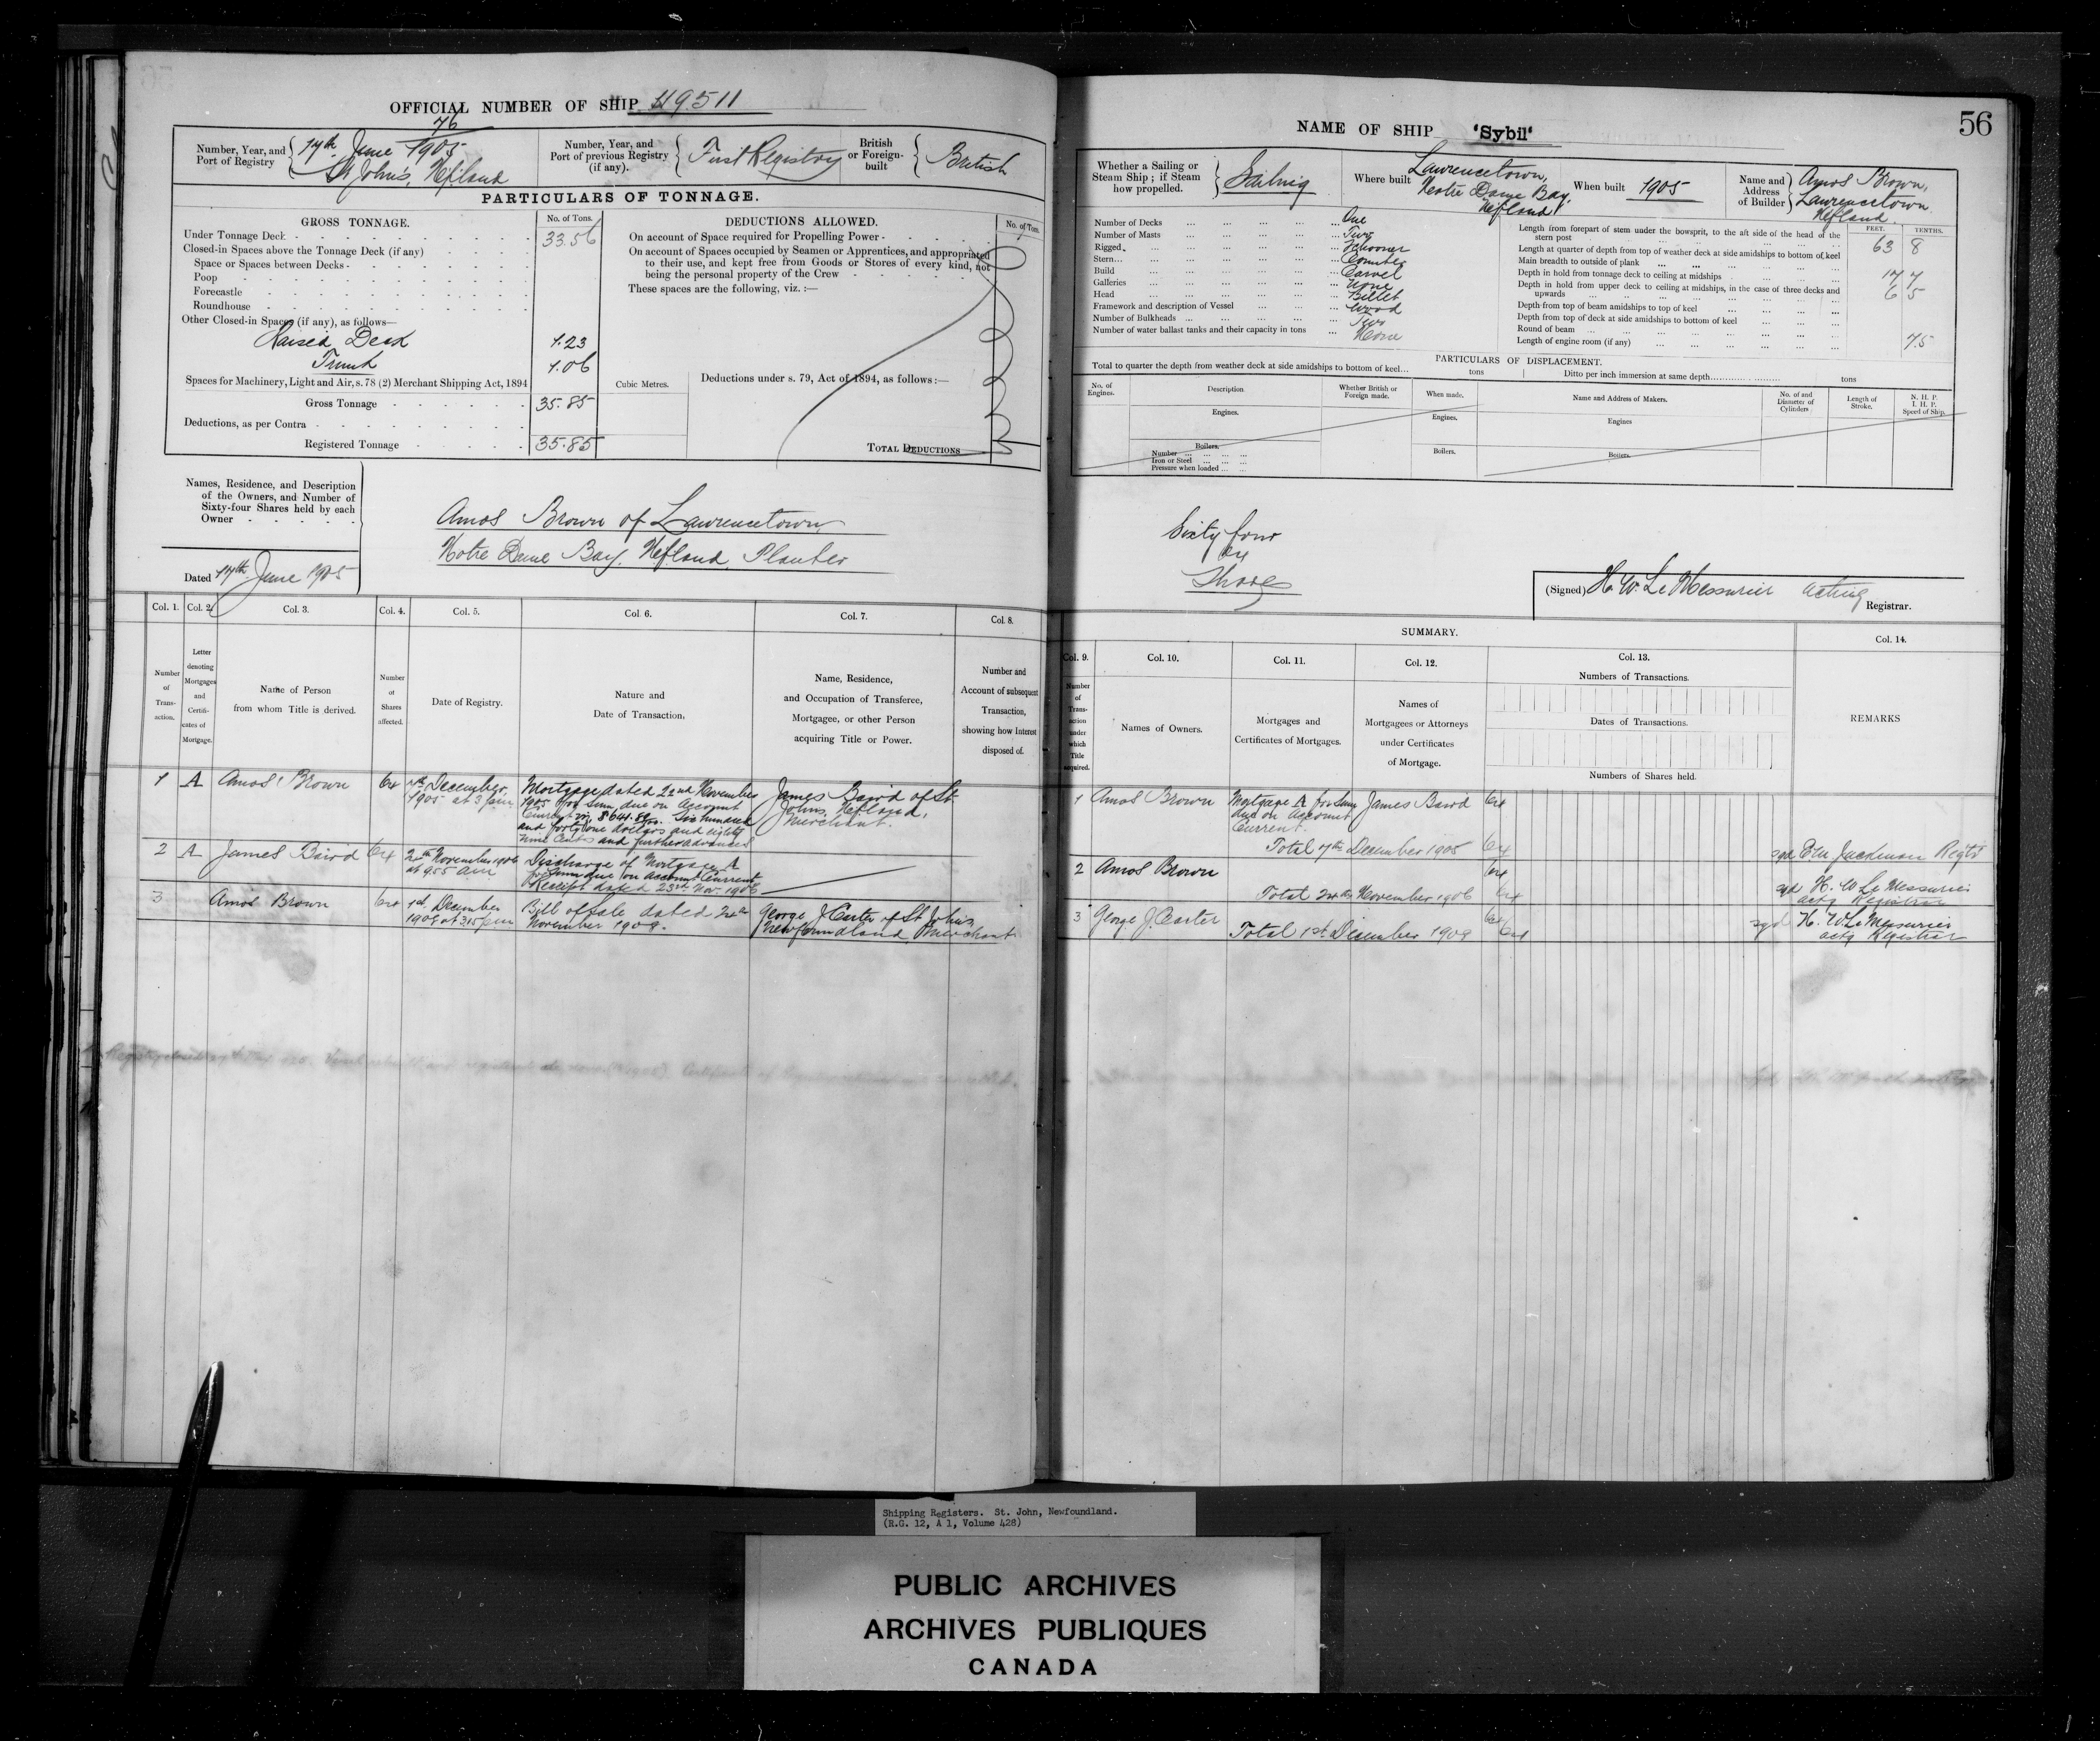 OFFICIAL NUMBER OF SHIP
76
Number, Year, and Port of Registry
17th June 1905
St. John's, Nfland
Number, Year, and Port of previous Registry (if any).
First Registry
British or Foreign-built
British
PARTICULARS OF TONNAGE.
GROSS TONNAGE.
No. of Tons.
Under Tonnage Deck 33.56
Closed-in Spaces above the Tonnage Deck (if any)
Space or Spaces between Decks
Poop
Forecastle
Roundhouse
Other Closed-in Spaces (if any), as follows—
Raised Deck 1.23
Trunk 1.06
Spaces for Machinery, Light and Air, s. 78 (2) Merchant Shipping Act, 1894
Gross Tonnage 35.85
Deductions, as per Contra
Registered Tonnage 35.85
Cubic Metres.
DEDUCTIONS ALLOWED.
No. of Tons.
On account of Space required for Propelling Power
On account of Spaces occupied by Seamen or Apprentices, and appropriated
to their use, and kept free from Goods or Stores of every kind, not
being the personal property of the Crew
These spaces are the following, viz. :—
Deductions under s. 79, Act of 1894, as follows :—
TOTAL DEDUCTIONS
Names, Residence, and Description
of the Owners, and Number of
Sixty-four Shares held by each
Owner
Dated 17th June 1905
Amos Brown of Lawrencetown,
Notre Dame Bay, Nfland, Planter
Col. 1. Col. 2. Col. 3. Col. 4. Col. 5. Col. 6. Col. 7. Col. 8.
Number of Transaction.
Letter denoting Mortgages and Certificates of Mortgage.
Name of Person from whom Title is derived.
Number of Shares affected.
Date of Registry.
Nature and Date of Transaction.
Name, Residence, and Occupation of Transferee, Mortgagee, or other Person acquiring Title or Power.
Number and Account of subsequent Transaction, showing how Interest disposed of.
1 A Amos Brown 64
7th December, 1905 at 3 pm
Mortgage dated 22nd November
1905 for Sum due on Account
Current viz. $641.89. Six hundred
and forty one dollars and eighty
nine Cents and further advances
James Baird of St.
John's, Nfland,
Merchant.
2 A James Baird 64
24th November 1906
at 9.55 am
Discharge of Mortgage A
for Sum due on Account Current
Receipt dated 23rd Nov. 1906
3 Amos Brown 64
1st December
at 3.15 pm
Bill of Sale dated 24th
November
George J. Carter of St John's,
Newfoundland Merchant
NAME OF SHIP 'Sybil'
56
Whether a Sailing or Steam Ship ; if Steam how propelled.
Sailing
Where built
Lawrencetown,
Notre Dame Bay,
Nfland
When built 1905
Name and Address of Builder
Amos Brown,
Lawrencetown
Nfland.
Number of Decks One
Number of Masts Two
Rigged Schooner
Stern Counter
Build Carvel
Galleries None
Head Billet
Framework and description of Vessel Wood
Number of Bulkheads Two
Number of water ballast tanks and their capacity in tons None
FEET. TENTHS.
Length from forepart of stem under the bowsprit, to the aft side of the head of the
stern post 63 8
Length at quarter of depth from top of weather deck at side amidships to bottom of keel
Main breadth to outside of plank 17 7
Depth in hold from tonnage deck to ceiling at midships 6 5
Depth in hold from upper deck to ceiling at midships, in the case of three decks and
upwards
Depth from top of beam amidships to top of keel
Depth from top of deck at side amidships to bottom of keel
Round of beam
Length of engine room (if any)
PARTICULARS OF DISPLACEMENT.
Total to quarter the depth from weather deck at side amidships to bottom of keel tons
Ditto per inch immersion at same depth tons
No. of Engines.
Description
Whether British or Foreign made.
When made.
Name and Address of Makers.
No. of and Diameter of Cylinders
Length of Stroke.
N. H. P.
I. H. P.
Speed of Ship.
Engines.
Engines.
Engines
Boilers.
Number
Iron or Steel
Pressure when loaded
Boilers.
Boilers.
Sixty four
64
Shares
(Signed) H. W. Le Messurier Acting Registrar.
SUMMARY.
Col. 9. Col. 10. Col. 11. Col. 12. Col. 13. Col. 14.
Number of Transaction under which Title acquired.
Names of Owners.
Mortgages and Certificates of Mortgages.
Names of Mortgagees or Attorneys under Certificates of Mortgage.
Numbers of Transactions.
Dates of Transactions.
Numbers of Shares held.
REMARKS
1 Amos Brown
Mortgage A for Sum
due on Account
Current.
James Baird 64
Total 7th December 1905 64
sgd E M Jackman Regtr
2 Amos Brown 64
Total 24th November 1906 64
sgd H. W Le Messurier
actg Registrar
3 George J. Carter 64
Total 1st December 64
sgd H. W Le Messurier
actg Registrar
Shipping Registers. St. John, Newfoundland.
(R.G. 12, A 1, Volume 428)
PUBLIC ARCHIVES
ARCHIVES PUBLIQUES
CANADA